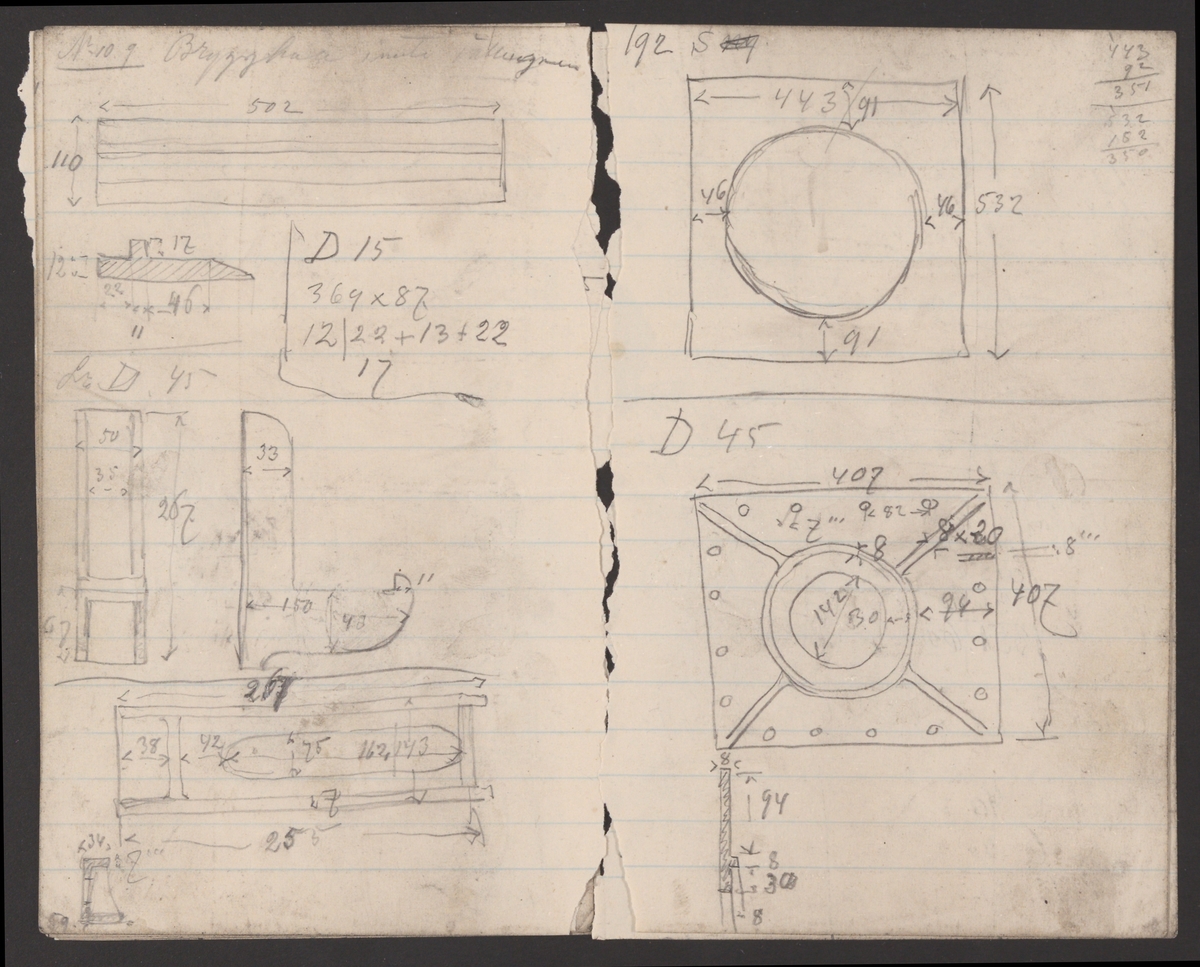 No 10 9 Brygghus
502
110
12
17
22
46
11
D 15
369 x 87
12 | 22 + 13 + 22
17
D 45
50
35
267
33
150
43
267
38
42
75
162
143
255
34
7'''
192 S
443
92
351
532
182
350
443
91
46
46
532
91
D 45
407
82
7'''
8
8 x 20
8'''
142
30
94
407
8
94
8
30
8